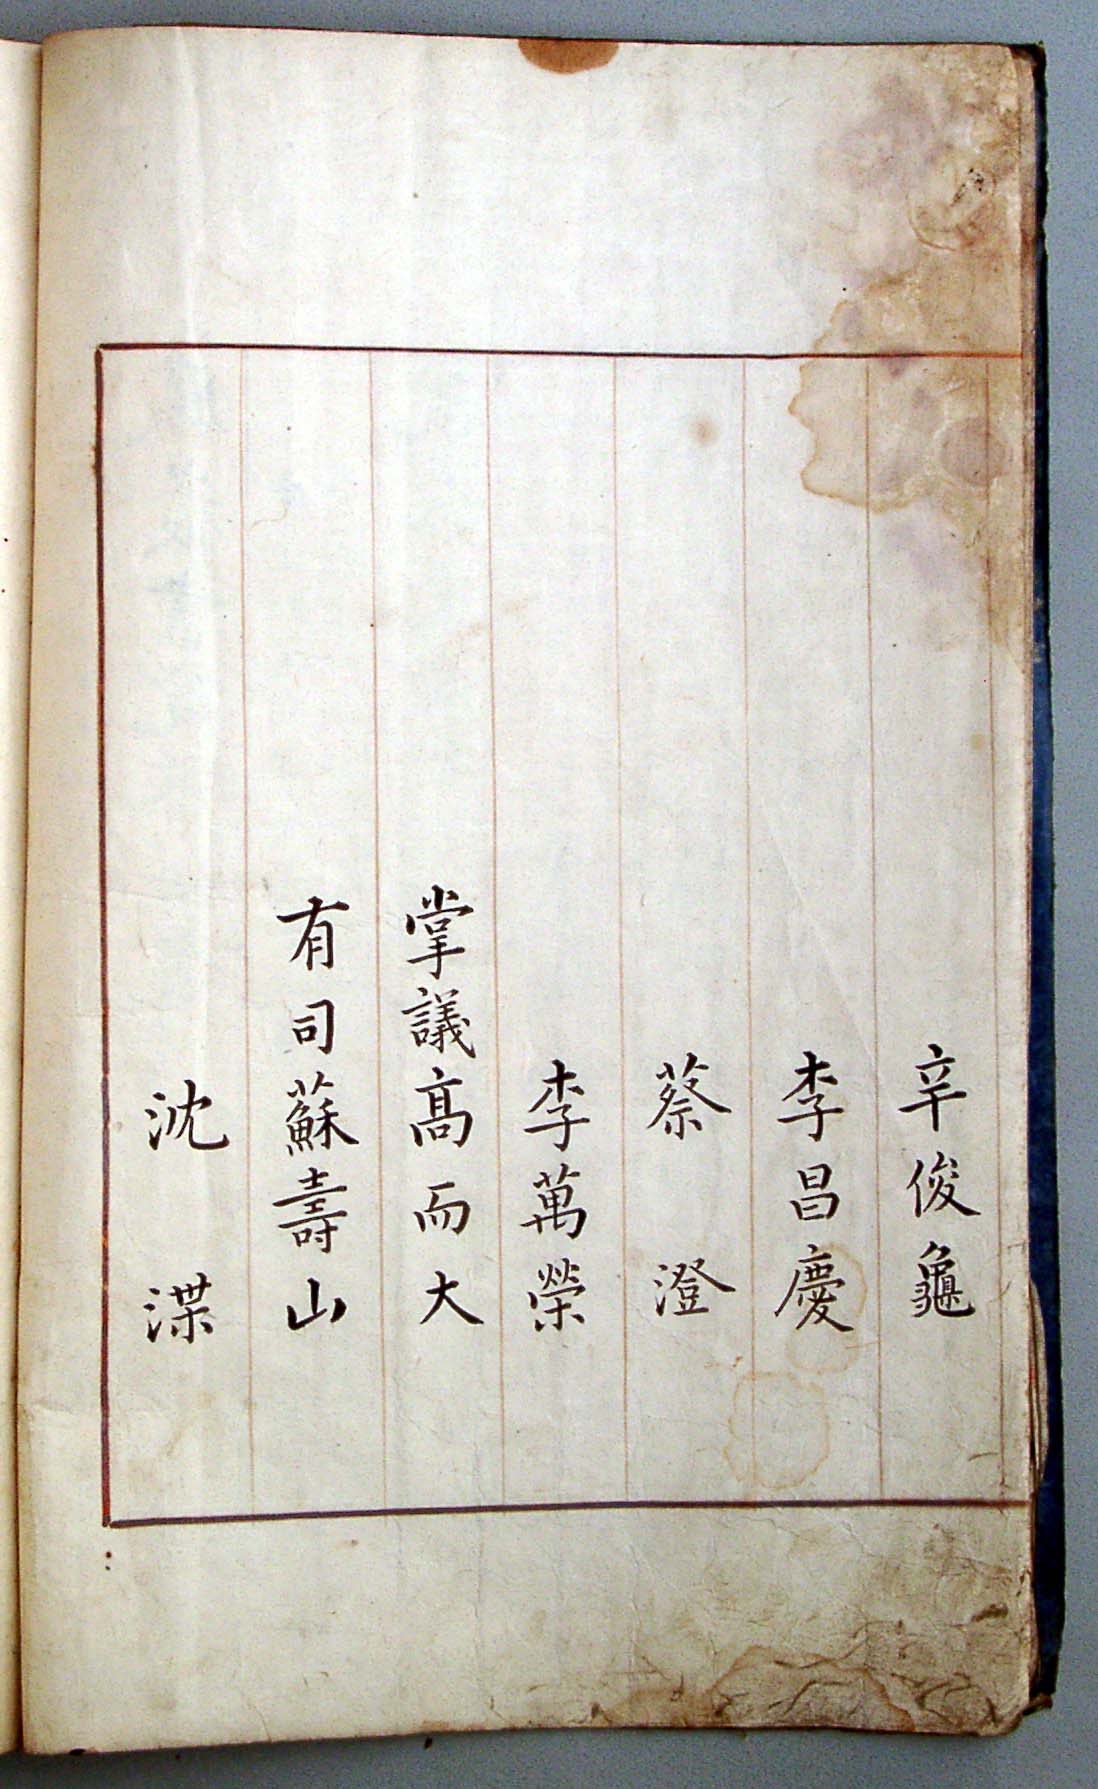 辛俊龜
李昌慶
蔡澄
李萬榮
掌議高而大
有司蘇壽山
沈渫